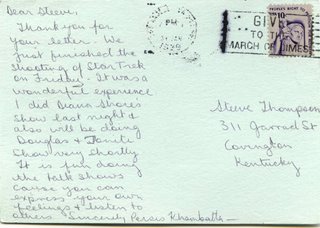 Dear Steve,
Thank you for
your letter. We
just finished the
shooting of Star Trek
on Friday - It was a
wonderful experience
I did Diana Shores
Show last night &
also will be doing
Douglas & Tonite
Show very shortly
It is fun doing
the talk shows
cause you can
express your own
feelings & listen to
others Sincerely Persis Khambatta —
PM
1979
GIVE
TO THE
MARCH OF DIMES
Steve Thompson
311 Garrard St
Covington
Kentucky